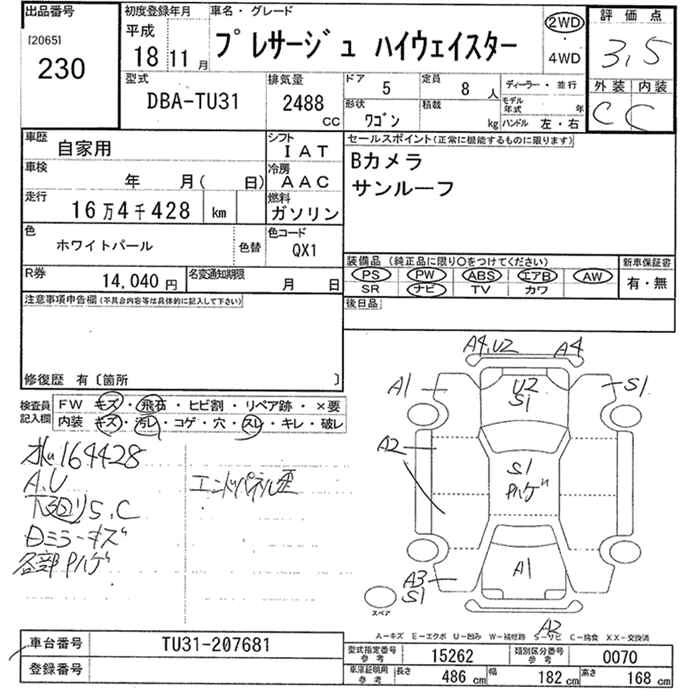 出品番号
[2065]
230
初度登録年月
平成
18 11 月
車名・グレード
プレサージュ ハイウェイスター
2WD
・
4WD
評価点
3,5
外装 内装
C C
型式
DBA-TU31
排気量
2488
CC
ドア 5
定員 8 人
形状 ワゴン
積載 kg
ディーラー・並行
モデル年式 年
ハンドル 左・右
車歴 自家用
シフト IAT
車検 年 月( 日)
冷房 AAC
走行 16万4千428 km
燃料 ガソリン
色 ホワイトパール 色替
色コード QX1
R券 14,040 円
名変通知期限 月 日
セールスポイント(正常に機能するものに限ります)
Bカメラ
サンルーフ
装備品 (純正品に限り○をつけてください)
PS PW ABS エアB AW
SR ナビ TV カワ
新車保証書
有・無
後日品
注意事項申告欄(不具合内容等は具体的に記入して下さい)
修復歴 有〔箇所 〕
検査員記入欄
FW キズ・飛石・ヒビ割・リペア跡・×要
内装 キズ・汚レ・コゲ・穴・スレ・キレ・破レ
164428
A.U
下廻りS.C
Dミラーキズ
各部Pハゲ
エンドパネル歪
A4,U2 A4
A1 U2 S1
S1
A2
S1
Pハゲ
A1
A3
S1
スペア
A2
A-キズ E-エクボ U-凹み W-補修跡 S-サビ C-腐食 XX-交換済
車台番号 TU31-207681
登録番号
型式指定番号 参考 15262
類別区分番号 参考 0070
車庫証明用 参考 長さ 486 cm 幅 182 cm 高さ 168 cm